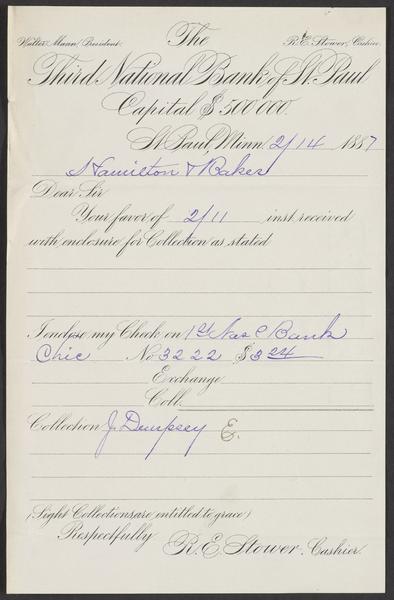 The
Walter Mann, President.
R. E. Stower, Cashier.
Third National Bank of St. Paul
Capital $500 000.
St. Paul, Minn. 2/14 1887
Hamilton & Baker
Dear Sir
Your favor of 2/11 inst received
with enclosure for Collection as stated
I enclose my Check on 1st Nat Bank
Chic No 3222 $3 24
Exchange
Coll.
Collection J. Dempsey E.
(Sight Collections are entitled to grace)
Respectfully
R. E. Stower. Cashier.